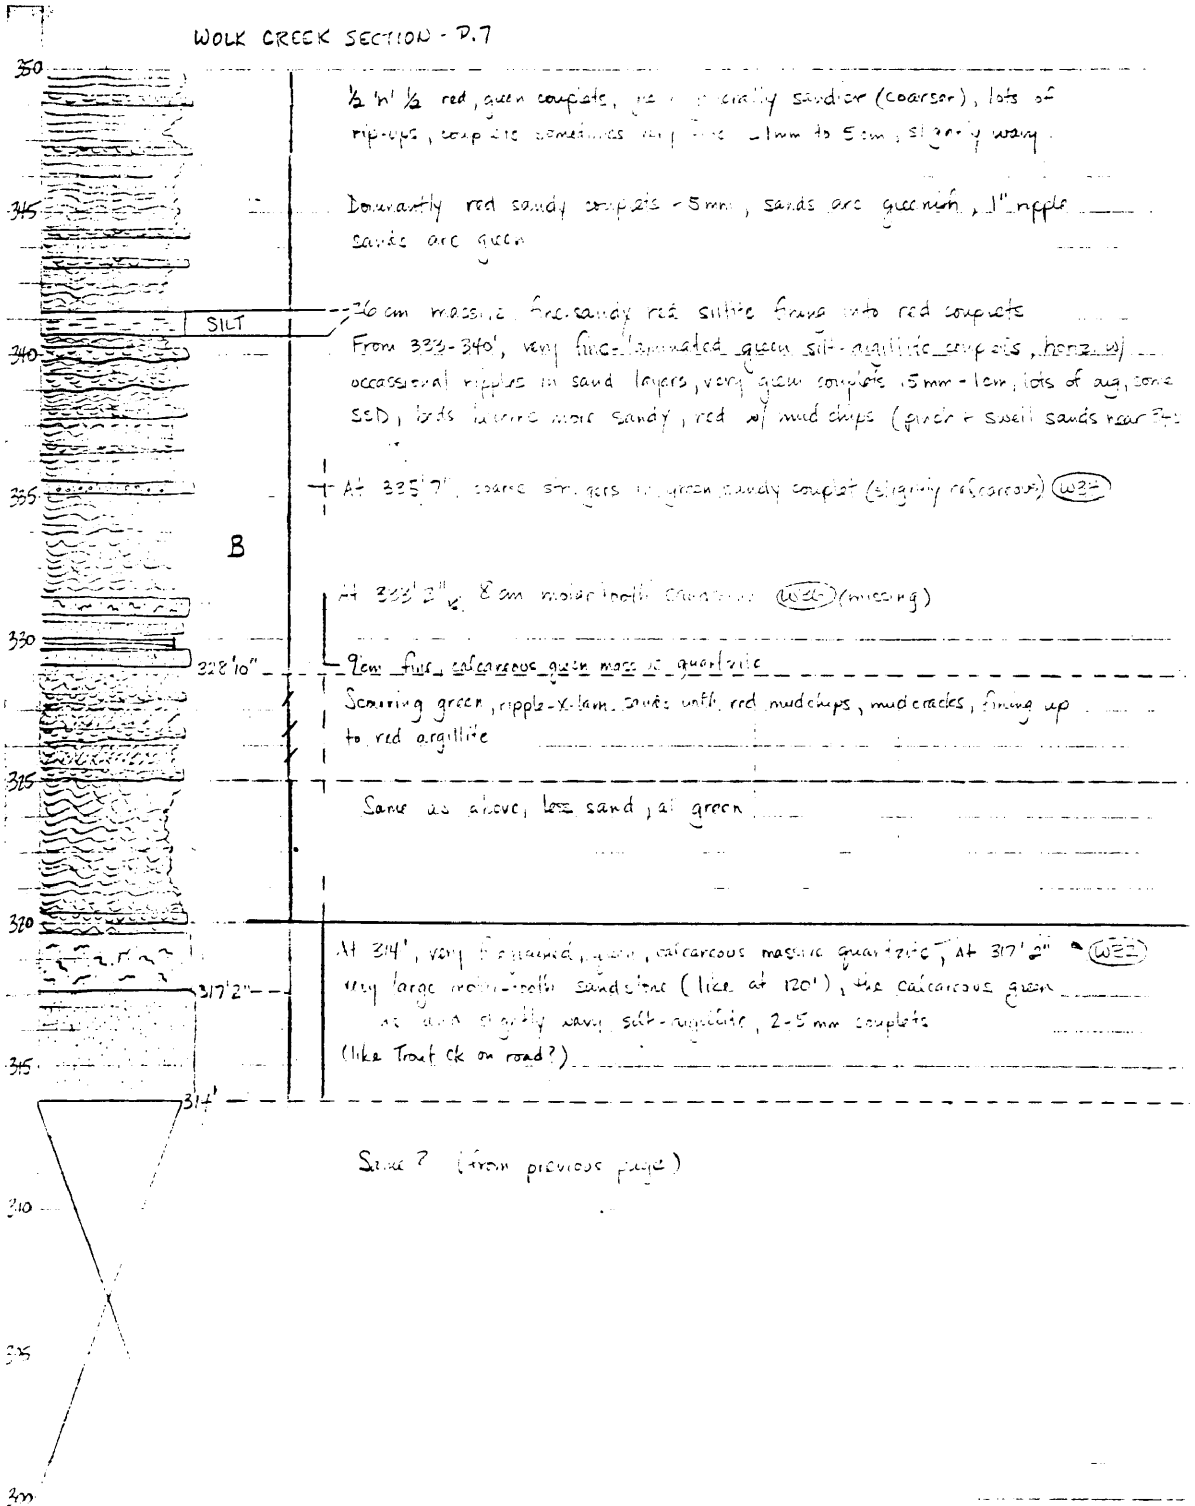 WOLK CREEK SECTION - P.7
350
½ 'n' ½ red, green couplets, sandier (coarser), lots of
rip-ups, couplets sometimes very fine 1mm to 5cm, slightly wavy
345
Dominantly red sandy couplets -5mm, sands are greenish, 1" ripple
sands are green
36 cm massive fine-sandy red siltite fining into red couplets
SILT
From 333-340', very fine-laminated green silt-argillite couplets, horiz. w/
340
occassional ripples in sand layers, very green couplets .5mm-1cm, lots of arg, some
SSD, beds become more sandy, red w/ mud chips (pinch + swell sands near
At 335'7", coarse stringers in green sandy couplet (slightly calcareous)
335
B
At 333'2" 8 cm molar tooth (missing)
330
9cm fine, calcareous green massive quartzite
328'10"
Scouring green, ripple-x-lam. sands with red mudchips, mudcracks, fining up
to red argillite
325
Same as above, less sand, all green
320
At 314', very fine grained, green, calcareous massive quartzite, At 317'2"
very large molar-tooth sandstone (like at 120'), the calcareous green
317'2"
and slightly wavy silt-argillite, 2-5 mm couplets
(like Trout Ck on road?)
315
314'
Same? (from previous page)
310
305
300